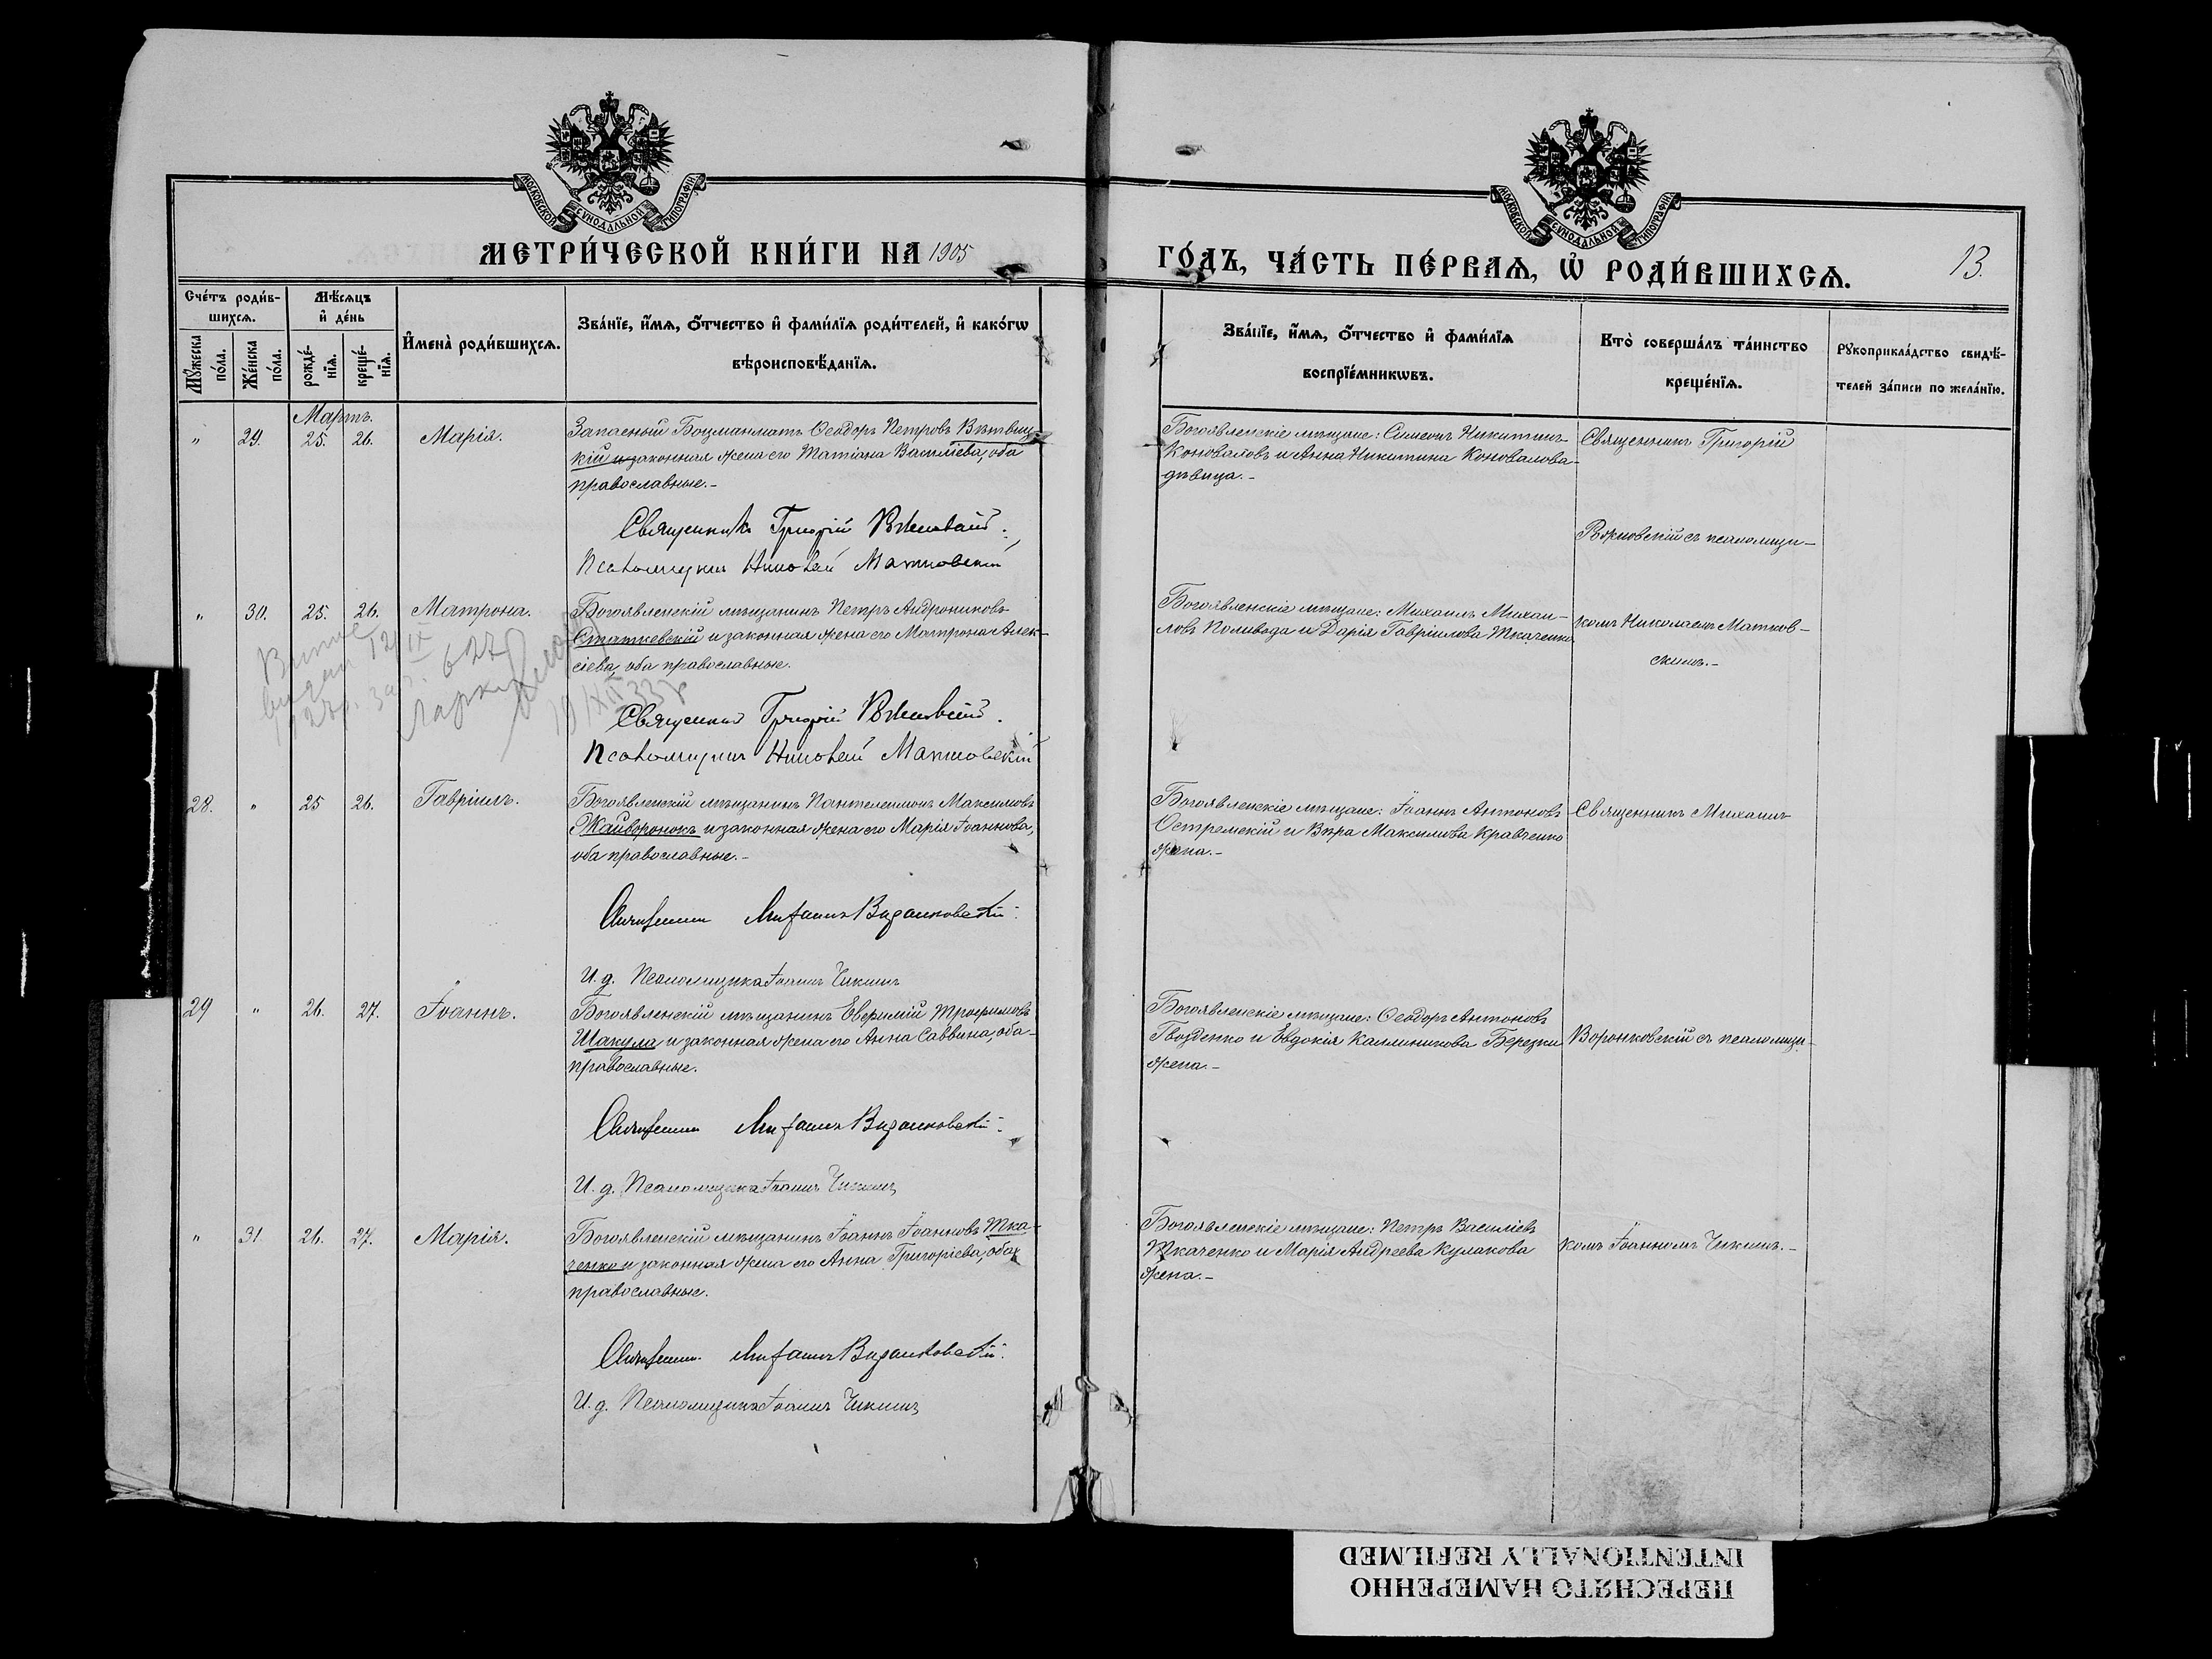 МОСКОВСКОЙ СѴНОДАЛЬНОЙ ТИПОГРАФІИ
МОСКОВСКОЙ СѴНОДАЛЬНОЙ ТИПОГРАФІИ
МЕТРИ́ЧЕСКОЙ КНИ́ГИ НА 1905
ГО́ДЪ, ЧА́СТЬ ПЕ́РВАѦ, Ѡ҆ РОДИ́ВШИХСѦ.
13.
Сче́тъ роди́в-
шихсѧ.
Мꙋ́жеска
по́ла.
Же́нска
по́ла.
Мѣ́сѧцъ
и҆ де́нь
рожде́-
нїѧ.
креще́-
нїѧ.
И҆мена̀ роди́вшихсѧ.
Зва́нїе, и҆́мѧ, ѻ҆́тчество и҆ фами́лїѧ роди́телей, и҆ како́гѡ
вѣроисповѣ́данїѧ.
Зва́нїе, и҆́мѧ, ѻ҆́тчество и҆ фами́лїѧ
воспрїе́мникѡвъ.
Кто̀ соверша́лъ та́инство
креще́нїѧ.
Рꙋкоприкла́дство свидѣ́-
телей за́писи по жела́нїю.
Мартъ.
" 29. 25. 26. Марія.
Запасный Боцманматъ Ѳеодоръ Петровъ Вѣтвиц-
кій и законная жена его Татіана Василіева, оба
православные.-
Священникъ Григорій Ряжновскій.
Псаломщикъ Николай Матковскій
Богоявленскіе мѣщане: Симеонъ Никитинъ
Коноваловъ и Анна Никитина Коновалова
дѣвица.-
Священникъ Григорій
Ряжновскій съ псаломщи-
" 30. 25. 26. Матрона.
Богоявленскій мѣщанинъ Петръ Андрониковъ
Статкевскій и законная жена его Матрона Алек-
сіева, оба православные.
Священникъ Григорій Ряжновскій.
Псаломщикъ Николай Матковскій
627
19/XII 33
Богоявленскіе мѣщане: Михаилъ Михаи-
ловъ Поливода и Дарія Гавріилова Ткаченко
комъ Николаемъ Матков-
скимъ.-
28. " 25 26. Гавріилъ.
Богоявленскій мѣщанинъ Пантелеимонъ Максимовъ
Жайворонокъ и законная жена его Марія Іоаннова,
оба православные.-
Священникъ Михаилъ Воронковскій.
И. д. Псаломщика Іоаннъ Чикинъ
Богоявленскіе мѣщане: Іоаннъ Антоновъ
Остремскій и Вѣра Максимова Кравченко
жена.-
Священникъ Михаилъ
29 " 26. 27. Іоаннъ.
Богоявленскій мѣщанинъ Евѳимій Трофимовъ
Шакула и законная жена его Анна Саввина, оба
православные.
Священникъ Михаилъ Воронковскій.
И. д. Псаломщика Іоаннъ Чикинъ
Богоявленскіе мѣщане: Ѳеодоръ Антоновъ
Гвозденко и Евдокія Каллиникова Березки
жена.-
Воронковскій съ псаломщи-
" 31. 26. 27. Марія.
Богоявленскій мѣщанинъ Іоаннъ Іоанновъ Тка-
ченко и законная жена его Анна Григоріева, оба
православные.
Священникъ Михаилъ Воронковскій.
И. д. Псаломщика Іоаннъ Чикинъ
Богоявленскіе мѣщане: Петръ Василіевъ
Ткаченко и Марія Андреева Кулакова
жена.-
комъ Іоанномъ Чикинъ.-
ПЕРЕСНЯТО НАМЕРЕННО
INTENTIONALLY REFILMED